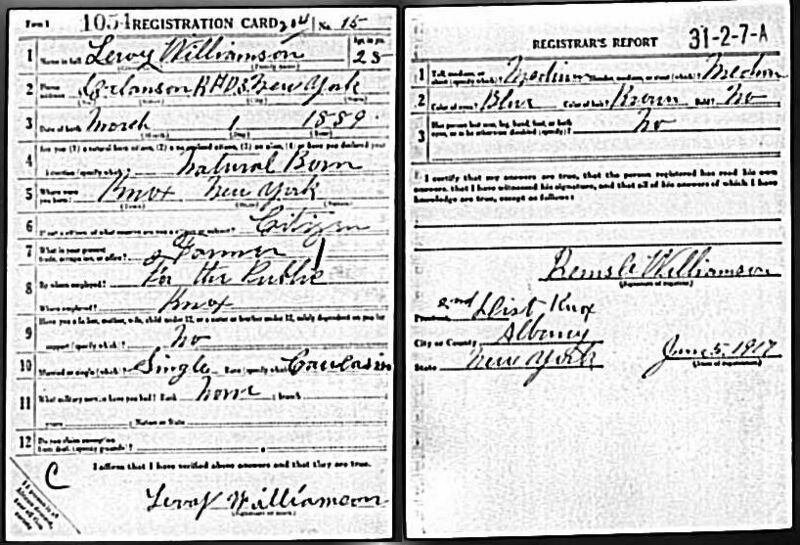 Form 1 1054 REGISTRATION CARD No. 15
Age, in yrs.
1 Name in full Leroy Williamson 28
(Family name)
2 Home address R.F.D. 3 New York
3 Date of birth March 1 1889
(Month) (Day) (Year)
4 Are you (1) a natural born citizen, (2) a naturalized citizen, (3) an alien, (4) or have you declared your
intention (specify which)? Natural Born
5 Where were you born? Knox New York
(Town) (State) (Nation)
6 If not a citizen, of what country are you a citizen or subject? Citizen
7 What is your present trade, occupation, or office? Farmer
8 By whom employed? For the Public
Where employed? Knox
9 Have you a father, mother, wife, child under 12, or a sister or brother under 12, solely dependent on you for
support (specify which)? No
10 Married or single (which)? Single Race (specify which)? Caucasin
11 What military service have you had? Rank None ; branch
years ; Nation or State
12 Do you claim exemption from draft (specify grounds)?
I affirm that I have verified above answers and that they are true.
C
Leroy Williamson
REGISTRAR'S REPORT 31-2-7-A
1 Tall, medium, or short (specify which)? Medium Slender, medium, or stout (which)? Medium
2 Color of eyes? Blue Color of hair? Brown Bald? No
3 Has person lost arm, leg, hand, foot, or both eyes, or is he otherwise disabled (specify)? No
I certify that my answers are true, that the person registered has read his own
answers, that I have witnessed his signature, and that all of his answers of which I have
knowledge are true, except as follows:
Williamson
(Signature of registrar)
Precinct 2nd Dist Knox
City or County Albany
State New York June 5, 1917
(Date of registration)